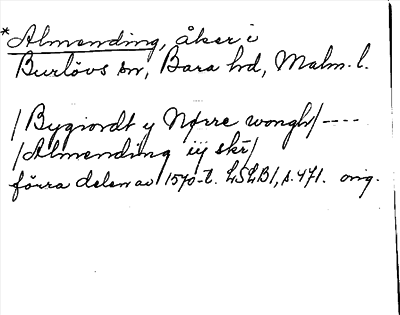 *Almending, åker i
Burlövs sn, Bara hd, Malm. l.
/Bygiordt y Nørre wongh/----
/Almending iij skr/
förra delen av 1570-t. LSLB1, s. 471. orig.